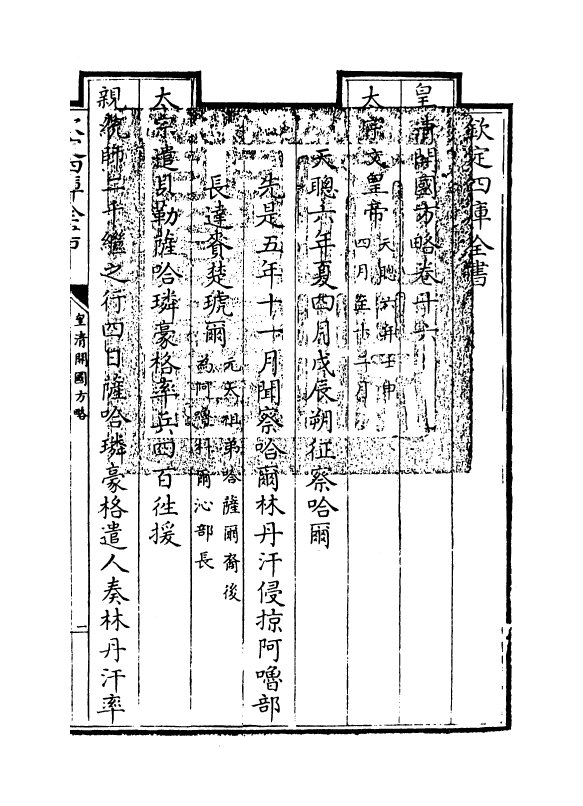 欽定四庫全書
皇清開國方略卷十六
太宗文皇帝
天聰六年壬申
四月至十二月
天聰六年夏四月戊辰朔征察哈爾
先是五年十一月聞察哈爾林丹汗侵掠阿嚕部
長達賚楚琥爾
元太祖弟哈薩爾裔後
為阿嚕科爾沁部長
太宗遣貝勒薩哈璘豪格率兵四百徃援
親統師二千繼之行四日薩哈璘豪格遣人奏林丹汗率
皇清開國方略
一